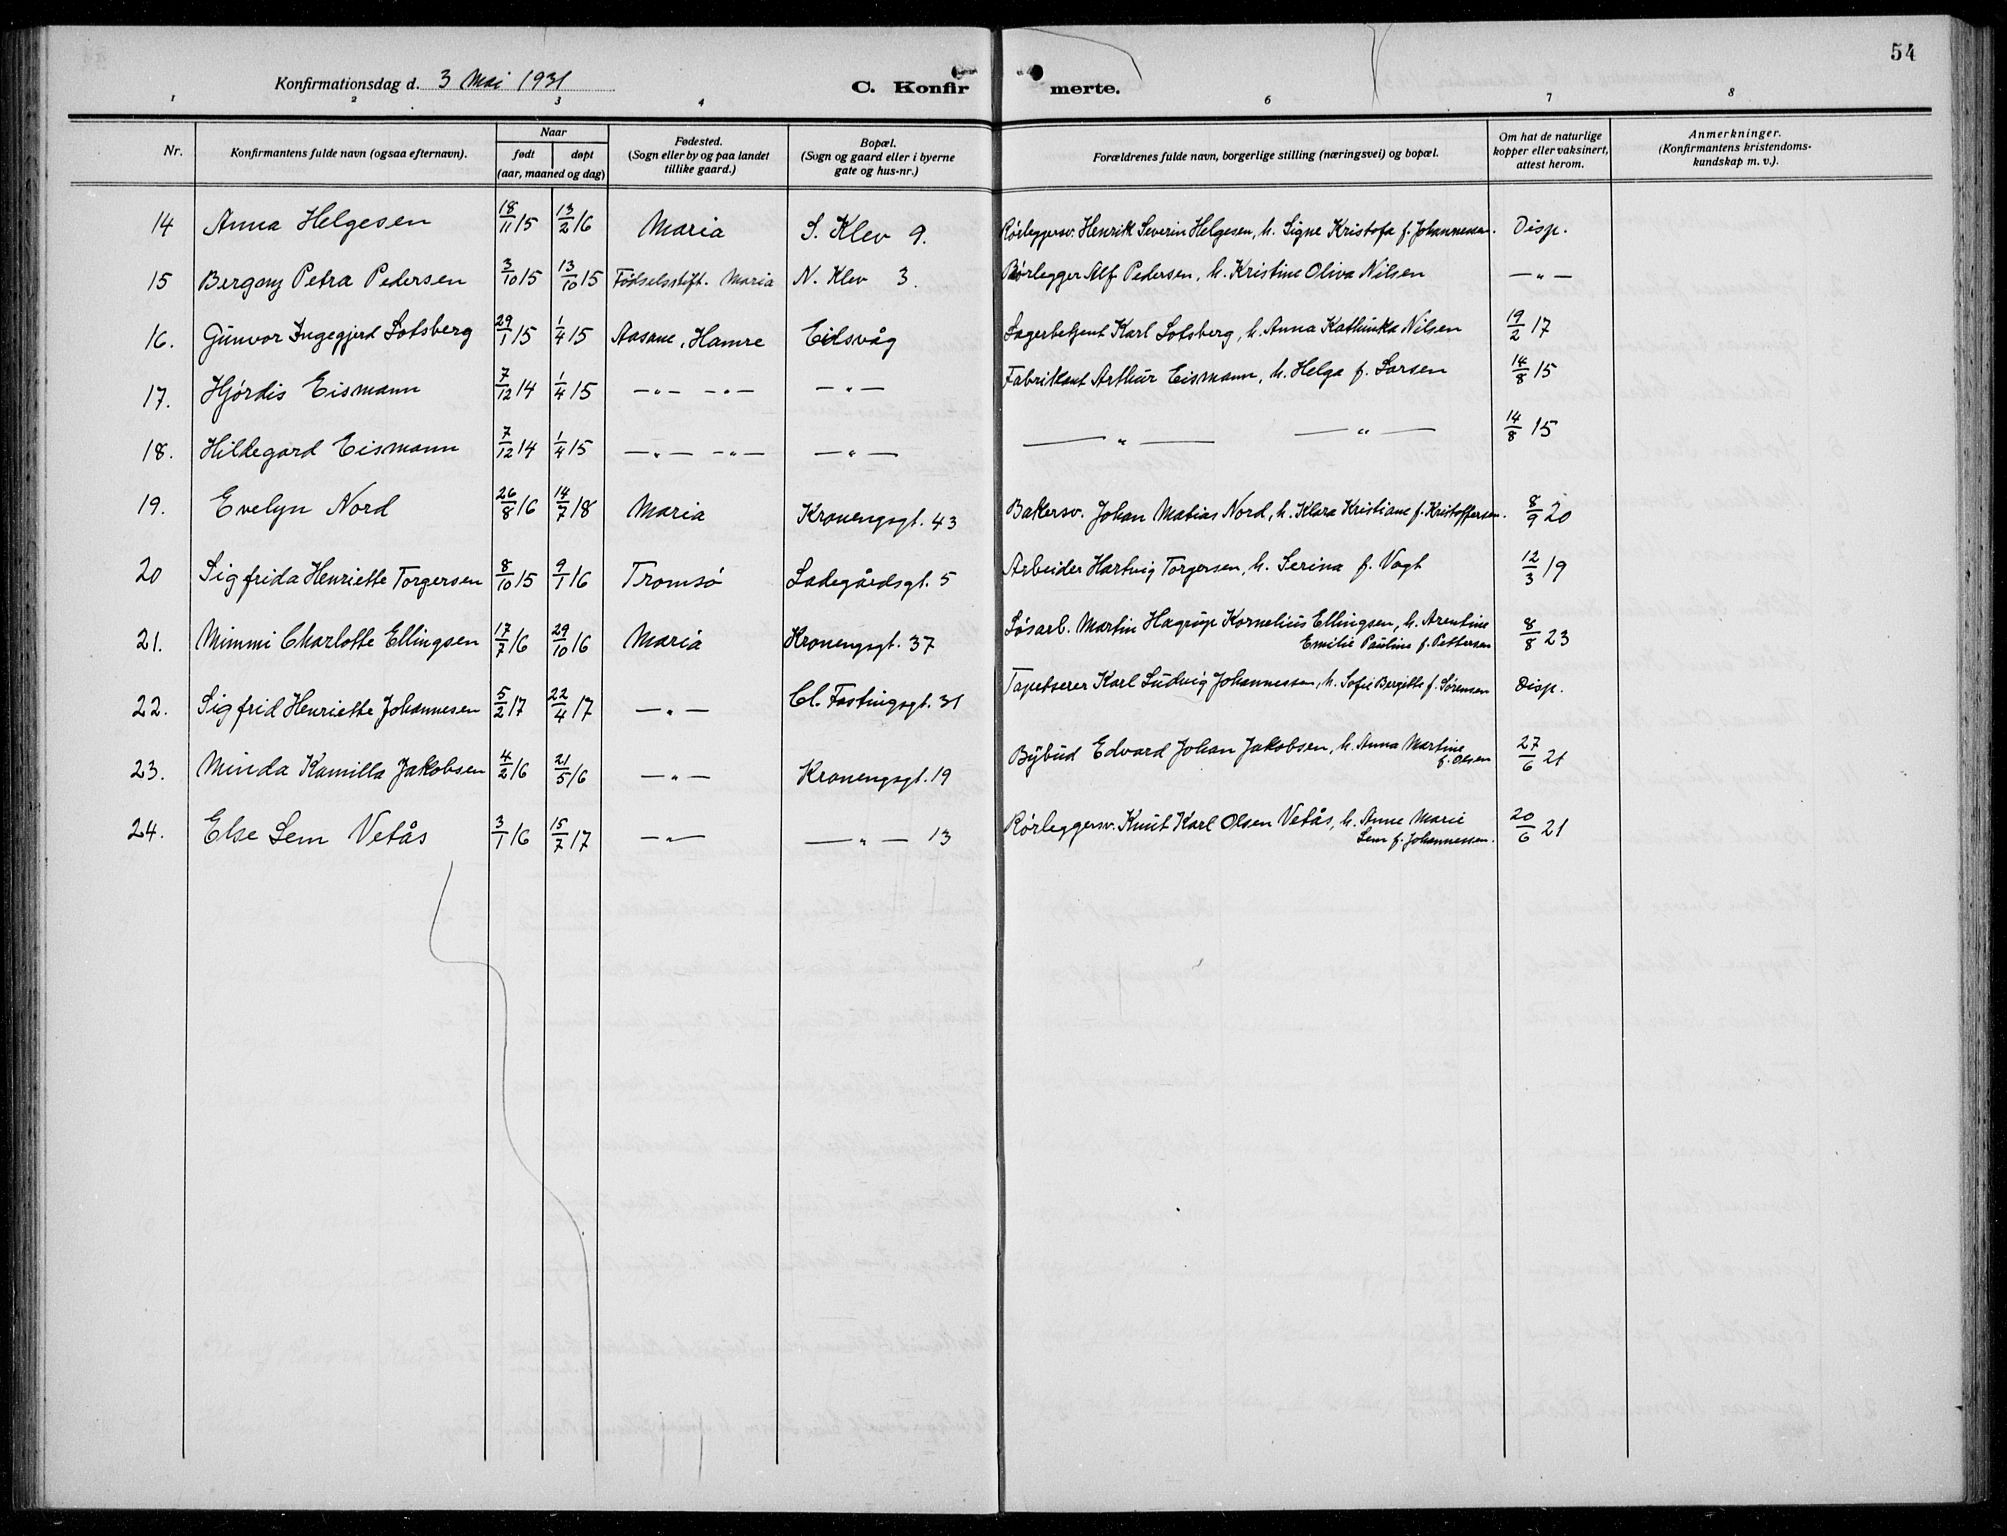 54
Konfirmationsdag d. 3 Mai 1931 C. Konfir merte.
1 2 3 4 6 7 8
Nr. Konfirmantens fulde navn (ogsaa efternavn). Naar født døpt (aar, maaned og dag) Fødested. (Sogn eller by og paa landet tillike gaard.) Bopæl. (Sogn og gaard eller i byerne gate og hus-nr.) Forældrenes fulde navn, borgerlige stilling (næringsvei) og bopæl. Om hat de naturlige kopper eller vaksinert, attest herom. Anmerkninger. (Konfirmantens kristendoms-kundskap m. v.).
14 Anna Helgesen 18/11 15 13/2 16 Maria S. Klev 9. Rørleggersv. Henrik Severin Helgesen, h. Signe Kristofa f. Johannessen. Disp.
15 Bergony Petra Pedersen 3/10 15 13/10 15 Fødselsstift. Maria N. Klev 3. Rørlegger Alf Pedersen, h. Kristine Oliva Nilsen —"—
16. Gunvor Ingegjerd Lotsberg 29/1 15 1/4 15 Aasane, Hamre Eidsvåg Lagerbetjent Karl Lotsberg, h. Anna Kathinka Nilsen 19/2 17
17. Hjørdis Eismann 7/12 14 1/4 15 —"— —"— —"— Fabrikant Arthur Eismann, h. Helga f. Larsen 14/8 15
18. Hildegard Eismann 7/12 14 1/4 15 —"— —"— —"— —"— —"— 14/8 15
19. Evelyn Nord 26/8 16 14/7 18 Maria Kronengsgt. 43 Bakersv. Johan Matias Nord, h. Klara Kristiane f. Kristoffersen. 8/9 20
20 Sigfrida Henriette Torgersen 8/10 15 9/1 16 Tromsø Ladegårdsgt. 5 Arbeider Hartvig Torgersen, h. Serina f. Vogt 12/3 19
21. Mimmi Charlotte Ellingsen 17/7 16 29/10 16 Maria Kronengsgt. 37 Løsarb. Martin Hagrup Kornelius Ellingsen, h. Arentine
Emilie Pauline f. Pettersen 8/8 23
22. Sigfrid Henriette Johannesen 5/2 17 22/4 17 —"— Cl. Fastingsgt. 31 Tapetserer Karl Ludvig Johannessen, h. Sofie Bergitte f. Sørensen Disp.
23. Minda Kamilla Jakobsen 4/2 16 21/5 16 —"— Kronengsgt. 19 Bybud Edvard Johan Jakobsen, h. Anna Martine
f. Olsen 27/6 21
24. Else Sem Vetås 3/1 16 15/7 17 —"— —"— 13 Rørleggersv. Knut Karl Olsen Vetås, h. Anne Marie
Sem f. Johannessen. 20/6 21